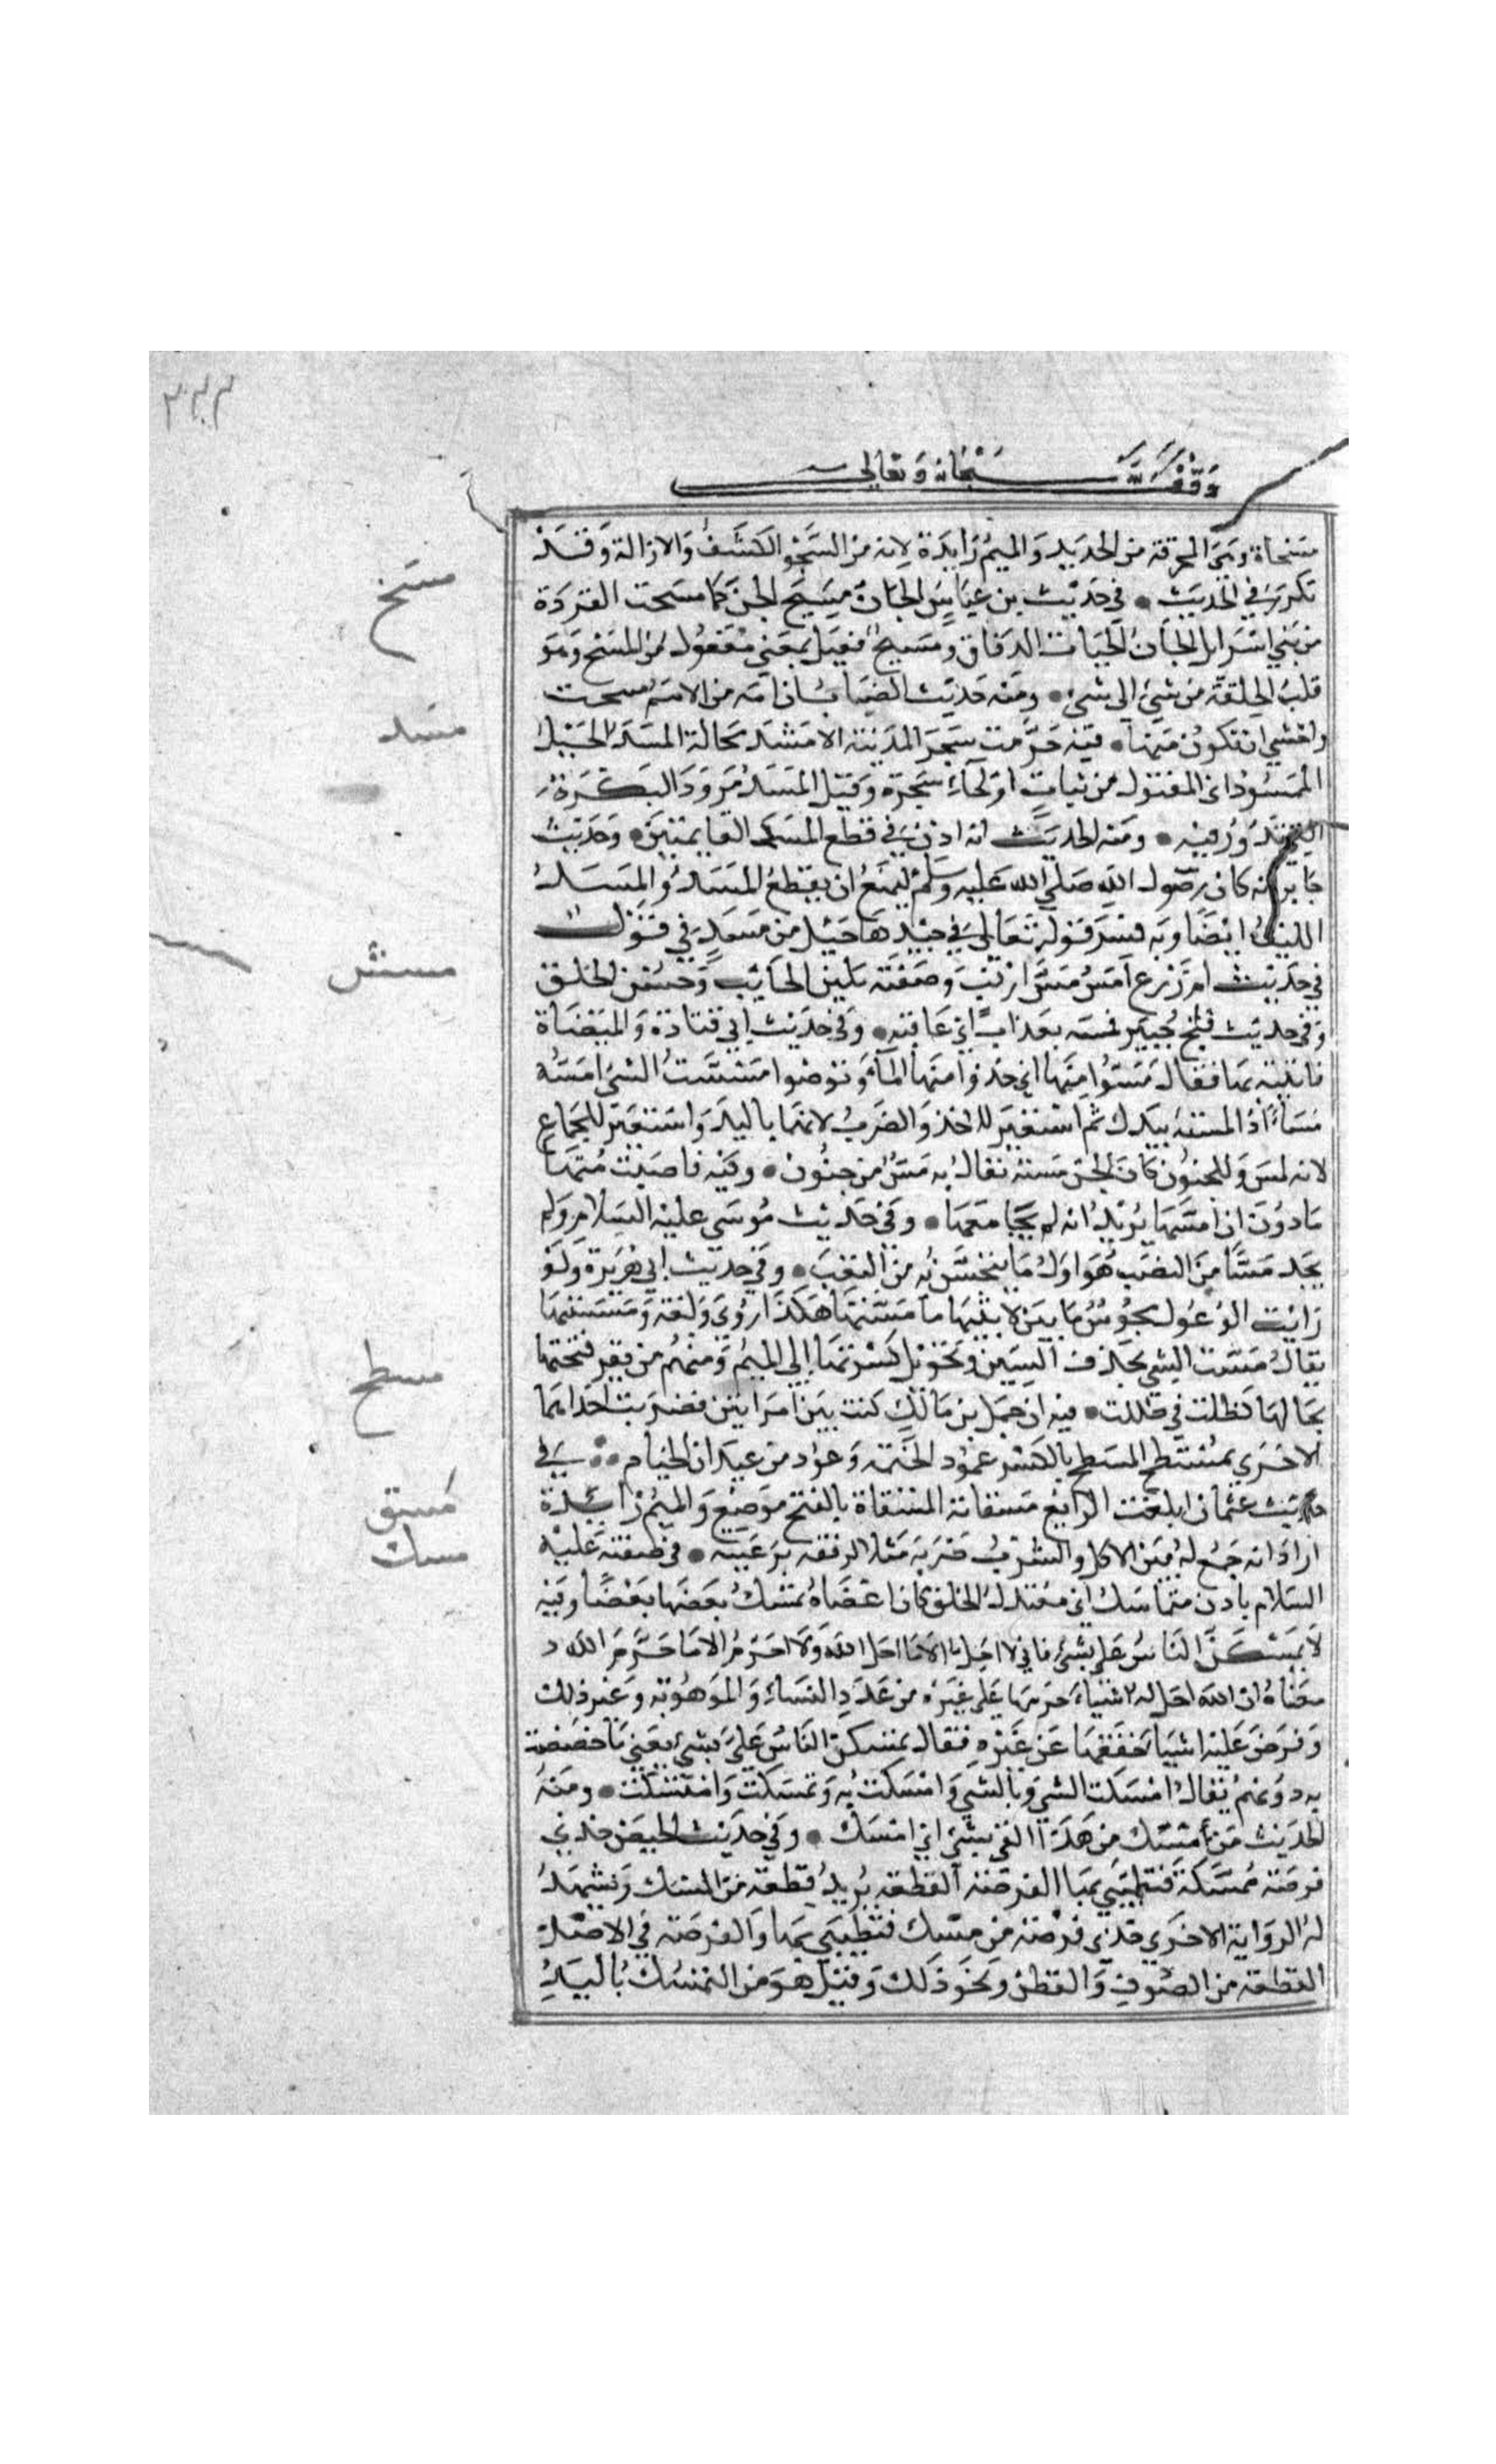 ٣٢٣
وقف لله سبحانه وتعالى
مسحاة وهي المجرفة من الحديد والميم زايدة لانه من السحو الكشف والازالة وقد
تكرر في الحديث • في حديث بن عباس الجان مسيخ الجن كما مسخت القردة
من بني اسرايل الجان الحيات الدقاق ومسيخ فعيل بمعني مفعول من المسخ وهو
قلب الخلقة من شيئ الي شيئ • ومنه حديث الضباب ان امة من الامم مسخت
واخشي ان تكون منها • فيه حرمت شجر المدينة الا مسد محالة المسد الحبل
الممسود اي المفتول من نبات او لحاء شجرة وقيل المسد مرود البكرة
الذي تدور فيه • ومنه الحديث انه اذن في قطع المسد القايمتين • وحديث
جابر انه كان رسول الله صلي الله عليه وسلم ليمنع ان يقطع المسد والمسد
الليف ايضا وبه فسر قوله تعالي في جيدها حبل من مسد في قول
في حديث ام زرع المس مس ارنب وصفته بلين الجانب وحسن الخلق
وفي حديث فتح خيبر فمسه بعذاب اي عاقبه • وفي حديث ابي قتادة والميضاة
فاتيته بها فقال مسوا منها اي خذوا منها الماء وتوضوا مسست الشي امسه
مسا اذا لمسته بيدك ثم استعير للاخذ والضرب لانهما باليد واستعير للجماع
لانه لمس وللجنون كان الجن مسته يقال به مس من جنون • وفيه فاصبت منها
ما دون ان امسها يريد انه لم يجامعها • وفي حديث موسي عليه السلام ولم
يجد مسا من النصب هو اول ما يحس به من التعب • وفي حديث ابي هريرة ولو
رايت الوعول تجرش ما بين لابتيها ما مستها هكذا روي ولغة ومسستها
يقال مست الشي بحذف السين وتحويل كسرتها الي الميم ومنهم من يقر فتحتها
بحالها كظلت في ظللت • فيه ان حمل بن مالك كنت بين امراتين فضربت احداهما
الاخري بمسطح المسطح بالكسر عمود الخيمة وعود من عيدان الخيام • في
حديث عثمان ابلغت الراتع مسقاته المسقاة بالفتح موضع والميم زايدة
اراد انه جمع له بين الاكل والشرب ضربه مثلا لرفقه برعيته • في صفته عليه
السلام بادن متماسك اي معتدل الخلق كان اعضاه يمسك بعضها بعضا وفيه
لا يمسكن الناس علي بشئ فاني لا احل الا ما احل الله ولا احرم الا ما حرم الله
معناه ان الله احل له اشياء حرمها علي غيره من عدد النساء والموهوبة وغير ذلك
وفرض عليه اشيا خففها عن غيره فقال يمسكن الناس علي بشئ يعني مما خصصت
به دونهم يقال امسكت الشي وبالشي وامسكت به وتمسكت وامتسكت • ومنه
الحديث من امسك من هذا الفئ بشئ اي امسك • وفي حديث الحيض خذي
فرصة ممسكة فتطيبي بها الفرصة القطعة يريد قطعة من المسك وتشهد
له الرواية الاخري خذي فرصة من مسك فتطيبي بها والفرصة في الاصل
القطعة من الصوف والقطن ونحو ذلك وقيل هو من التمسك باليد
مسخ
مسد
مسس
مسطح
مسق
مسك